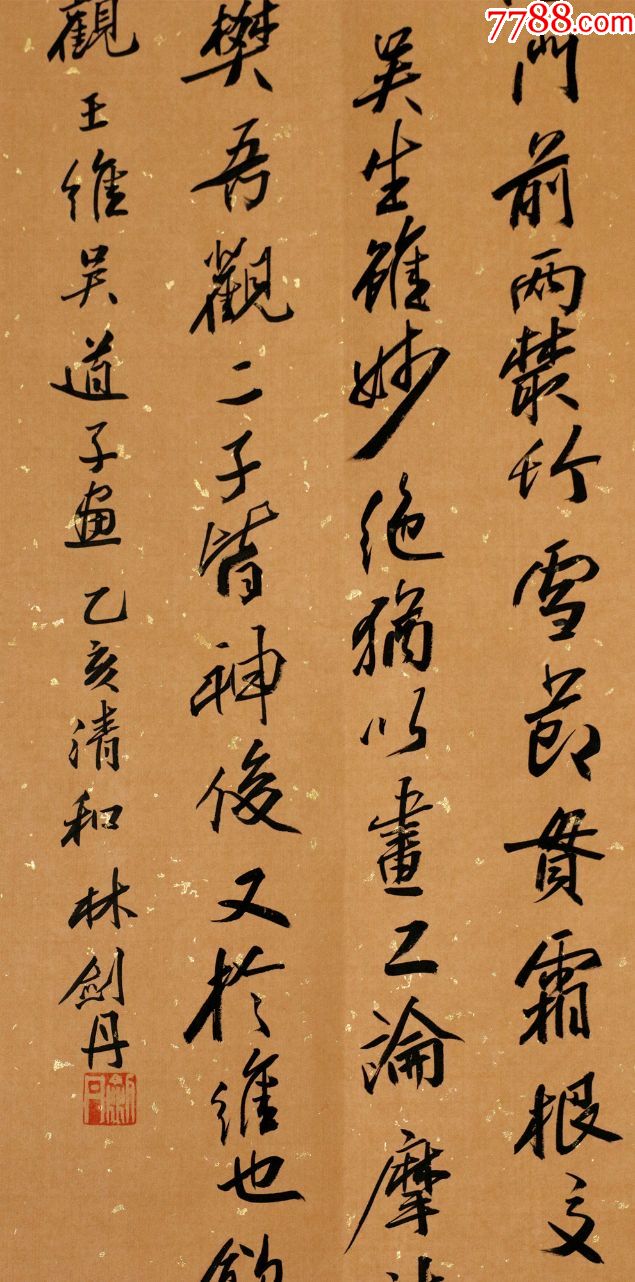 7788.com
門前兩叢竹雪節貫霜根交
吳生雖妙絕猶以畫工論摩
樊吾觀二子皆神俊又於維也
觀王維吳道子畫乙亥清和林劍丹